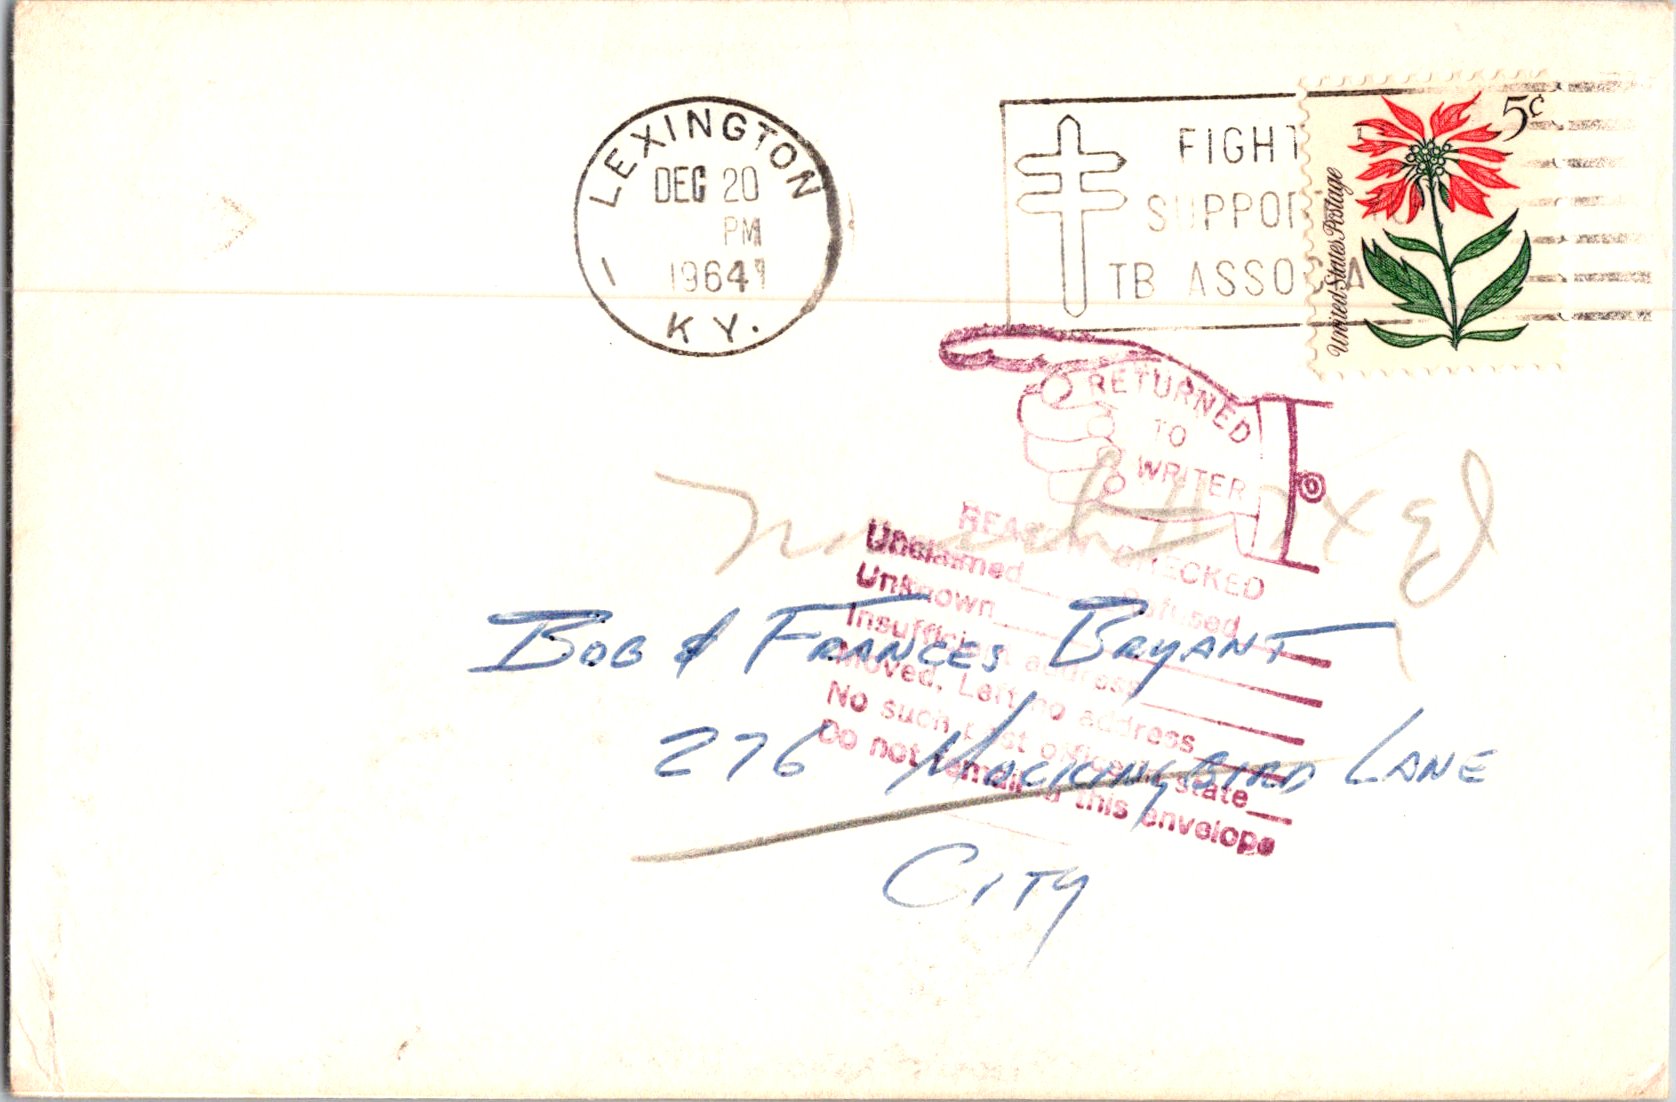 LEXINGTON
DEC 20
PM
1964
1
KY.
FIGHT
SUPPO
TB ASSO
5¢
United States Postage
RETURNED
TO
WRITER
REASON CHECKED
Unclaimed Refused
Unknown
Insufficient address
Moved, Left no address
No such post office in state
Do not remail in this envelope
BOB & FRANCES BRYANT
276 MOCKINGBIRD LANE
CITY